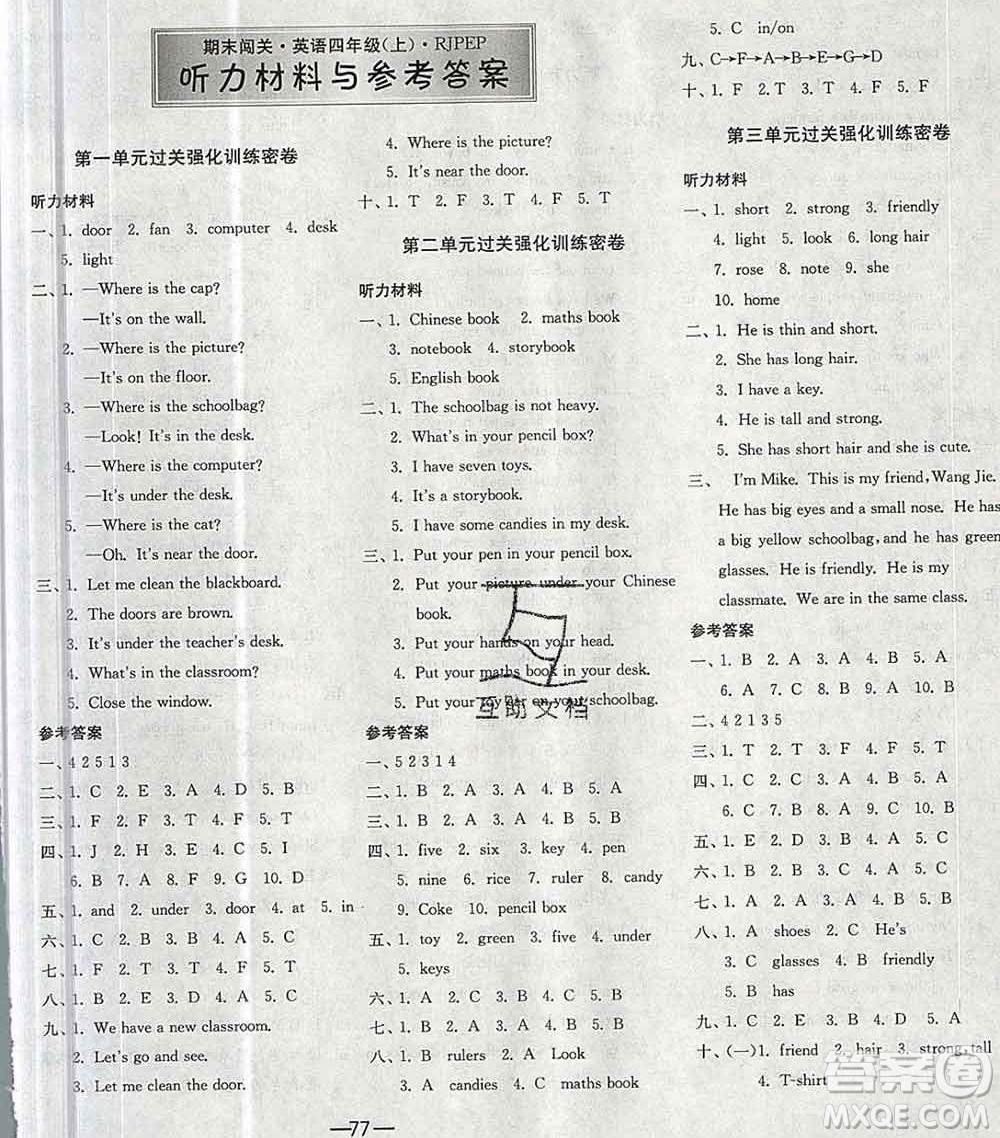 期末闯关·英语四年级(上)·RJPEP
听力材料与参考答案
第一单元过关强化训练密卷
听力材料
一、1. door 2. fan 3. computer 4. desk
5. light
二、1. —Where is the cap?
—It's on the wall.
2. —Where is the picture?
—It's on the floor.
3. —Where is the schoolbag?
—Look! It's in the desk.
4. —Where is the computer?
—It's under the desk.
5. —Where is the cat?
—Oh. It's near the door.
三、1. Let me clean the blackboard.
2. The doors are brown.
3. It's under the teacher's desk.
4. What's in the classroom?
5. Close the window.
参考答案
一、4 2 5 1 3
二、1. C 2. E 3. A 4. D 5. B
三、1. F 2. F 3. T 4. F 5. T
四、1. J 2. H 3. E 4. C 5. I
6. B 7. A 8. F 9. G 10. D
五、1. and 2. under 3. door 4. at 5. in
六、1. C 2. B 3. B 4. A 5. C
七、1. F 2. T 3. T 4. F 5. T
八、1. C 2. B 3. A 4. B 5. C
九、1. We have a new classroom.
2. Let's go and see.
3. Let me clean the door.
4. Where is the picture?
5. It's near the door.
十、1. T 2. F 3. T 4. F 5. T
第二单元过关强化训练密卷
听力材料
一、1. Chinese book 2. maths book
3. notebook 4. storybook
5. English book
二、1. The schoolbag is not heavy.
2. What's in your pencil box?
3. I have seven toys.
4. It's a storybook.
5. I have some candies in my desk.
三、1. Put your pen in your pencil box.
2. Put your picture under your Chinese
book.
3. Put your hands on your head.
4. Put your maths book in your desk.
5. Put your toy car on your schoolbag.
参考答案
一、5 2 3 1 4
二、1. B 2. A 3. B 4. B 5. A
三、1. B 2. B 3. A 4. B 5. B
四、1. five 2. six 3. key 4. pen
5. nine 6. rice 7. ruler 8. candy
9. Coke 10. pencil box
五、1. toy 2. green 3. five 4. under
5. keys
六、1. A 2. C 3. B 4. A 5. B
七、1. C 2. B 3. A 4. B 5. C
八、1. B rulers 2. A Look
3. A candies 4. C maths book
5. C in/on
九、C→F→A→B→E→G→D
十、1. F 2. T 3. T 4. F 5. F
第三单元过关强化训练密卷
听力材料
一、1. short 2. strong 3. friendly
4. light 5. look 6. long hair
7. rose 8. note 9. she
10. home
二、1. He is thin and short.
2. She has long hair.
3. I have a key.
4. He is tall and strong.
5. She has short hair and she is cute.
三、 I'm Mike. This is my friend, Wang Jie.
He has big eyes and a small nose. He has
a big yellow schoolbag, and he has green
glasses. He is friendly. He is my
classmate. We are in the same class.
参考答案
一、1. B 2. A 3. A 4. B 5. A
6. A 7. A 8. B 9. A 10. B
二、4 2 1 3 5
三、1. T 2. T 3. F 4. F 5. T
四、1. C 2. C 3. A 4. B 5. A
6. C 7. B 8. A 9. B 10. C
五、1. T 2. T 3. F 4. F 5. T
六、1. C 2. B 3. B 4. A 5. B
七、1. A 2. B 3. A 4. B 5. B
八、1. A shoes 2. C He's
3. C glasses 4. B friendly
5. B has
九、1. C 2. E 3. B 4. D 5. A
十、(一)1. friend 2. hair 3. strong, tall
4. T-shirt
—77—
互助文档
答案圈
MXQE.COM